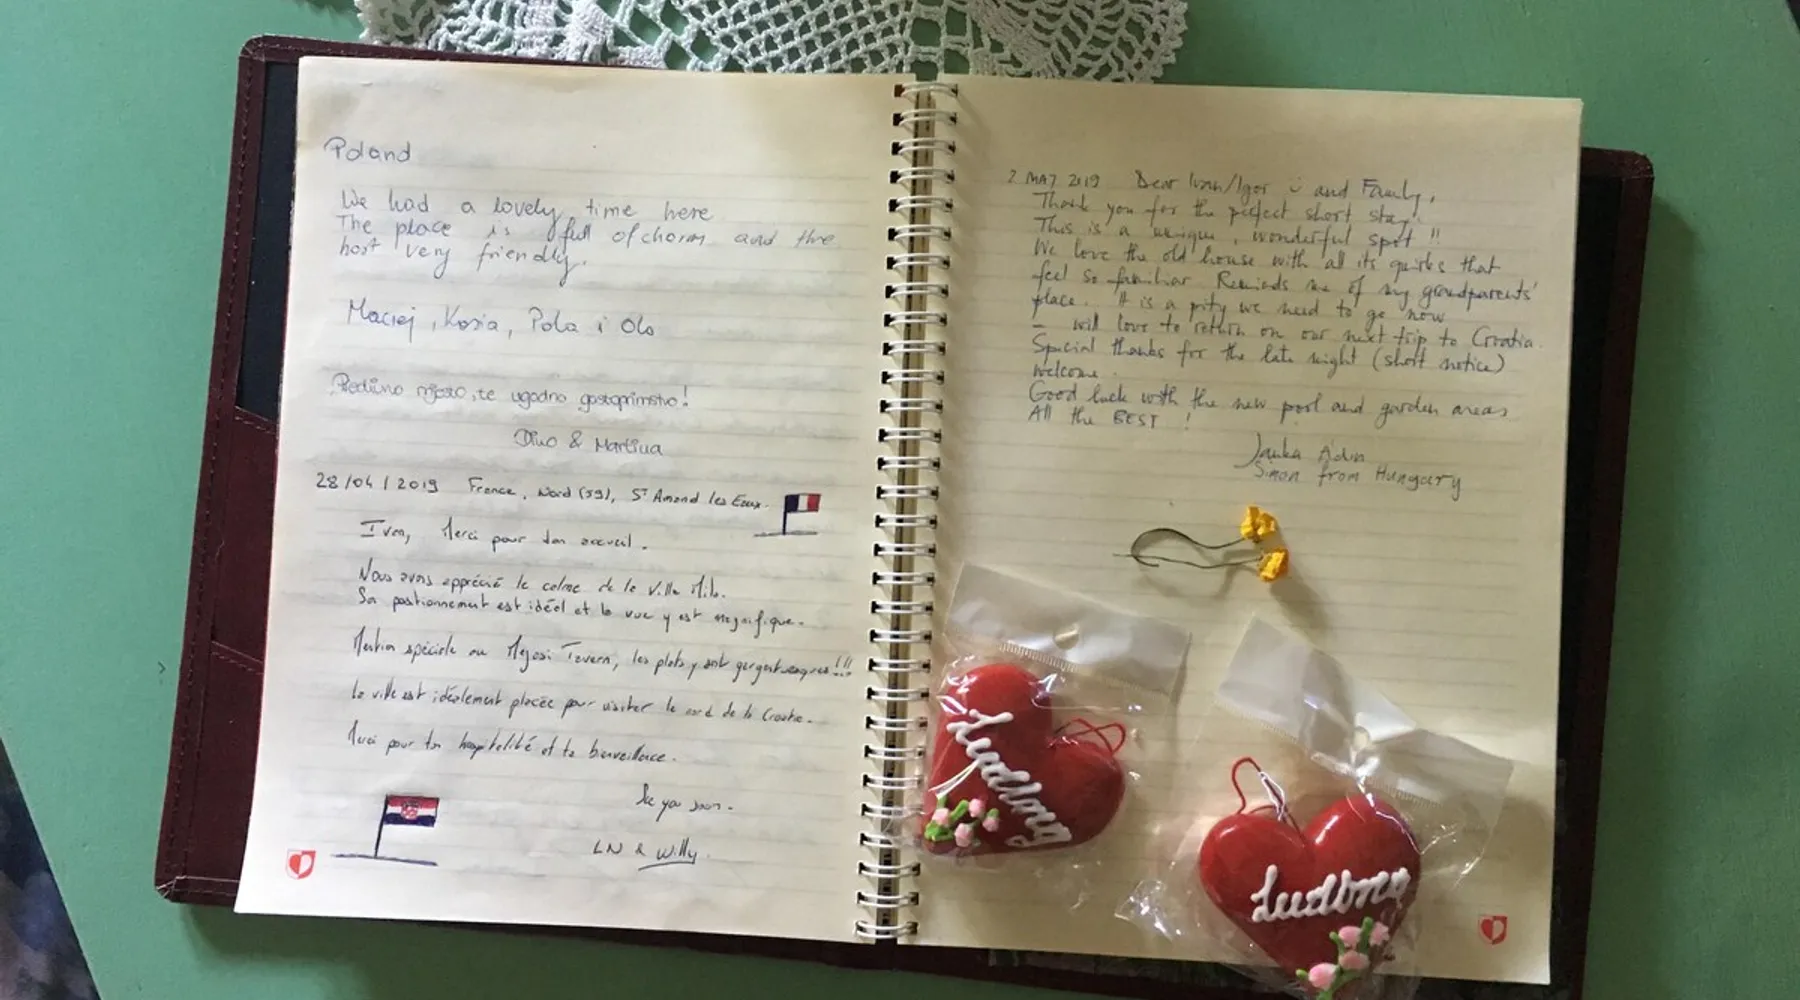 Poland
We had a lovely time here
The place is full of charm and the
host very friendly.
Maciej, Kasia, Pola i Olo
Predivno mjesto, te ugodno gostoprimstvo!
Dino & Martina
28/04/2019 France, Nord (59), St Amand les Eaux.
Ivan, Merci pour ton accueil.
Nous avons apprécié le calme de la Villa Mila.
Son positionnement est idéal et la vue y est magnifique.
Mention spéciale au Negosi Tavern, les plats y sont gargantuesques!!!
La ville est idéalement placée pour visiter le nord de la Croatie.
Merci pour ton hospitalité et ta bienveillance.
See you soon.
LN & Willy.
2 MAY 2019 Dear Ivan/Igor and Family,
Thank you for the perfect short stay!
This is a unique, wonderful spot !!
We love the old house with all its quirks that
feel so familiar. Reminds me of my grandparents'
place. It is a pity we need to go now
– will love to return on our next trip to Croatia.
Special thanks for the late night (short notice)
welcome.
Good luck with the new pool and garden areas
All the BEST !
Janka Adin
Simon from Hungary
Ludbreg
Ludbreg